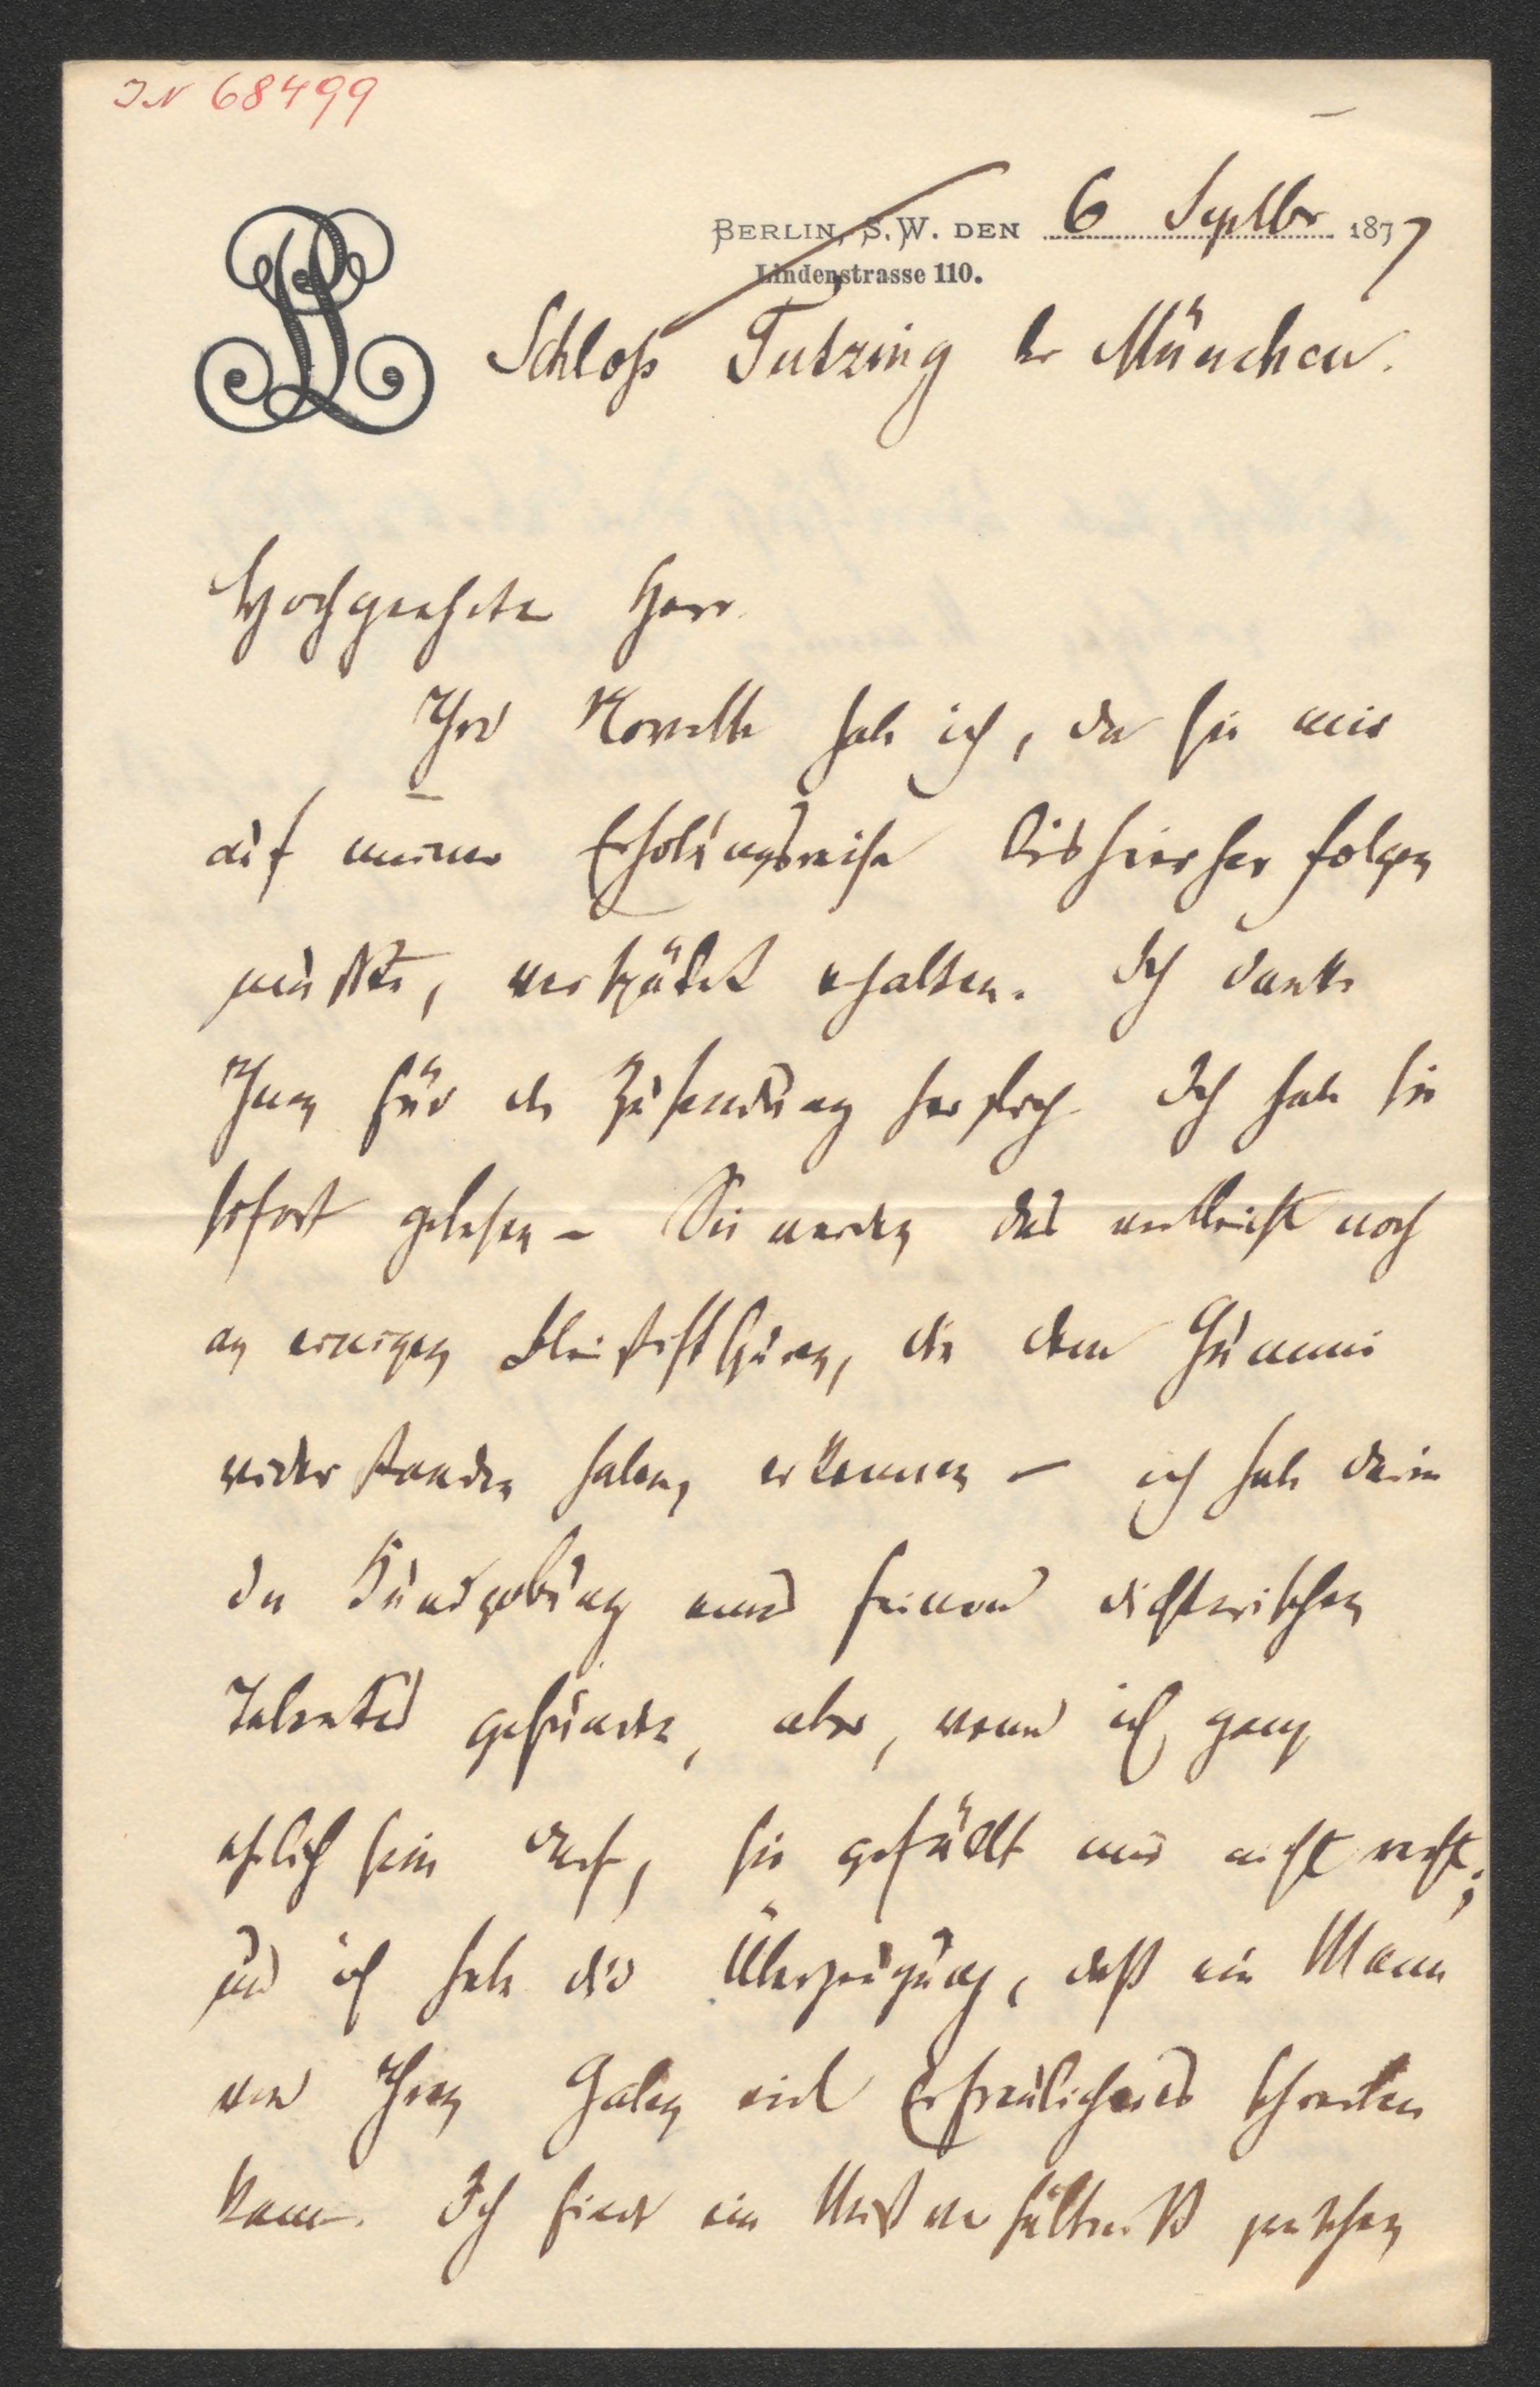 IN 68499
BERLIN, S.W. DEN 6 Septbr 1877
Lindenstrasse 110.
PL
Schloß Tutzing br München.
Hochgeehrter Herr.
Ihre Novelle habe ich, da sie mir
auf meiner Erholungsreise bis hierher folgen
mußte, verspätet erhalten. Ich danke
Ihnen für die Zusendung herzlich. Ich habe sie
sofort gelesen – Sie werden das vielleicht noch
an einigen Bleistiftspuren, die dem Gummi
widerstanden haben, erkennen – ich habe darin
die Kundgebung eines feinen dichterischen
Talentes gefunden, aber, wenn ich ganz
ehrlich sein darf, sie gefällt mir nicht recht;
und ich habe die Überzeugung, daß ein Mann
von Ihren Gaben viel Erfreulicheres schreiben
kann. Ich finde ein Mißverhältniß zwischen